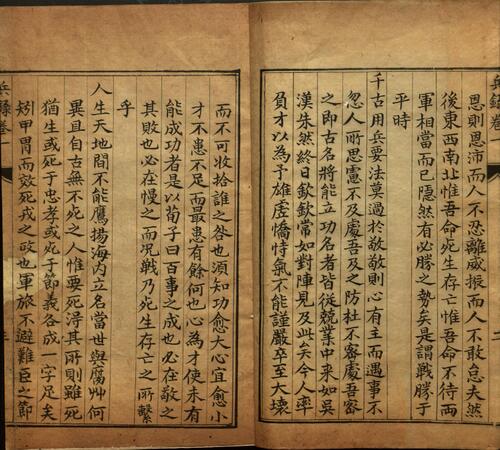 恩則恩沛而人不忍離威振而人不敢怠夫然
後東西南北惟吾命死生存亡惟吾命不待兩
軍相當而已隱然有必勝之勢矣是謂戰勝于
平時
千古用兵要法莫過於敬敬則心有主而遇事不
忽人所思慮不及處吾及之防杜不審處吾審
之即古名將能立功名者皆從兢業中來如吳
漢朱然終日欽欽常如對陣見及此矣今人率
負才以為予雄虛憍恃氣不能謹嚴卒至大壞
而不可收拾誰之咎也須知功愈大心宜愈小
才不患不足而最患有餘何也心為才使未有
能成功者是以荀子曰百事之成也必在敬之
其敗也必在慢之而况戰乃死生存亡之所繫
乎
人生天地間不能鷹揚海內立名當世與腐艸何
異且自古無不死之人惟要死淂其所則雖死
猶生或死于忠孝或死于節義各成一字足矣
矧甲冑而效死戎之政也軍旅不避難臣之節
兵錄卷一